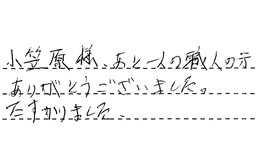 小笠原様、あと一人の職人の示
ありがとうございました。
たすかりました、